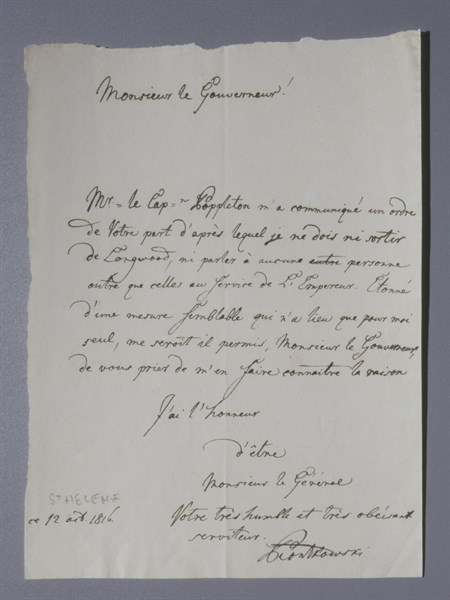 Monsieur le Gouverneur!
Mr= le Cap=n Poppleton m'a communiqué un ordre
de Votre part d'après lequel je ne dois ni sortir
de Longwood, ni parler à aucune autre personne
outre que celles au Service de L'Empereur. Étonné
d'une mesure Semblable qui n'a lieu que pour moi
seul, me seroit il permis, Monsieur le Gouverneur,
de vous prier de m'en faire connaitre la raison
J'ai l'honneur
d'être
Monsieur le Général
Votre très humble et très obéissant
serviteur.
Piontkowski
St HELENE
ce 12 aot. 1816.